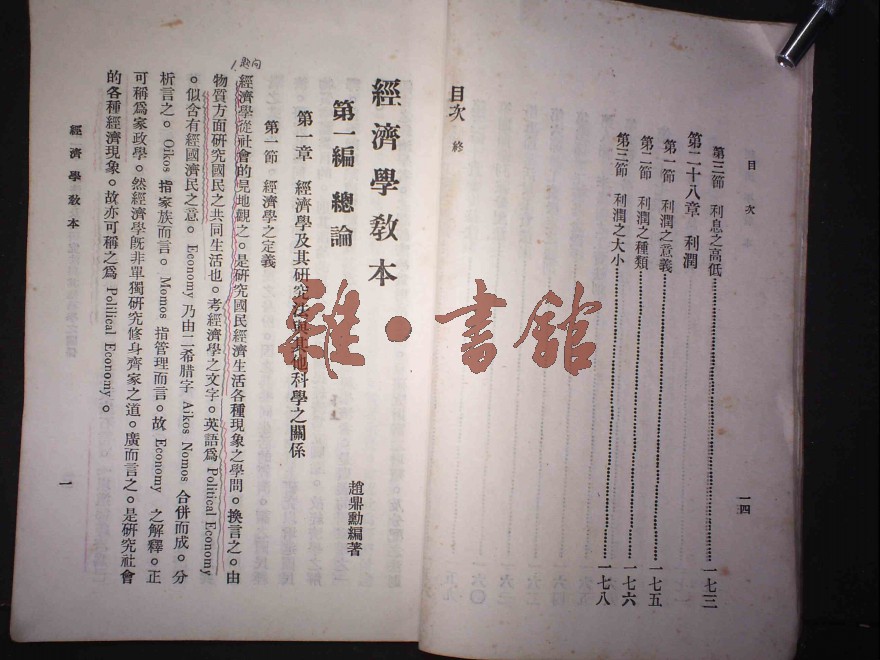 目次
一四
第三節　利息之高低………一七三
第二十八章　利潤
第一節　利潤之意義………一七五
第二節　利潤之種類………一七六
第三節　利潤之大小………一七八
目次　終
雜·書館
經濟學教本
趙鼎勳編著
第一編　總論
第一章　經濟學及其研究法與其他科學之關係
第一節　經濟學之定義
經濟學從社會的見地觀之。是研究國民經濟生活各種現象之學問。換言之。由
物質方面研究國民之共同生活也。考經濟學之文字。英語爲 Political Economy
。似含有經國濟民之意。Economy 乃由二希腊字 Aikos Nomos 合併而成。分
析言之。Oikos 指家族而言。Momos 指管理而言。故 Economy 之解釋。正
可稱爲家政學。然經濟學既非單獨研究修身齊家之道。廣而言之。是研究社會
的各種經濟現象。故亦可稱之爲 Polilical Economy。
經濟學教本
一